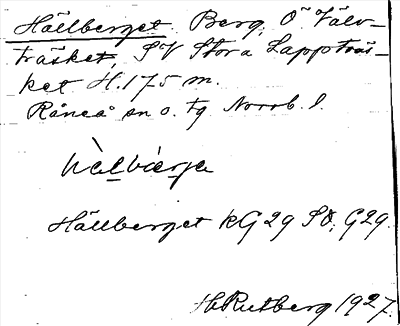 Hällberget. Berg, Ö. Valv-
träsket, SV Stora Lappträs-
ket H. 175 m.
Råneå sn o. tg Norrb. l.
Hällberget KG 29 SO, G29.
H Rutberg 1927.